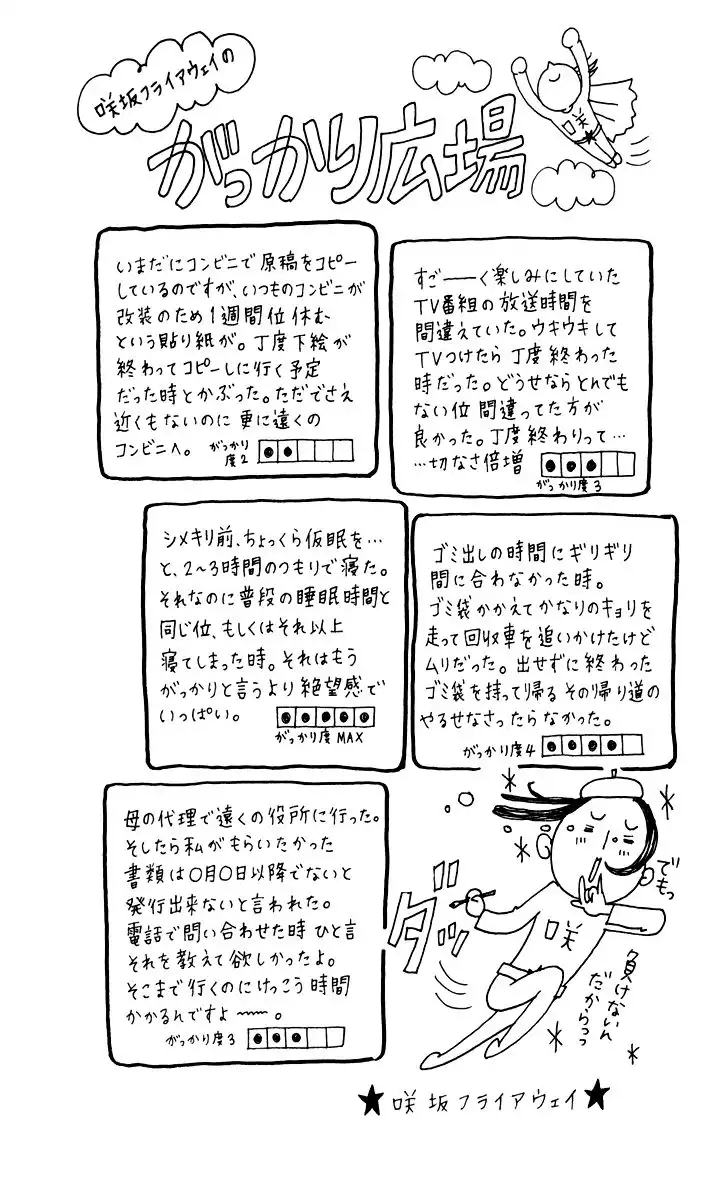 咲坂フライアウェイの
がっかり広場
咲
いまだにコンビニで原稿をコピー
しているのですが、いつものコンビニが
改装のため1週間位休む
という貼り紙が。丁度下絵が
終わってコピーしに行く予定
だった時とかぶった。ただでさえ
近くもないのに更に遠くの
コンビニへ。
がっかり
度2
すご――く楽しみにしていた
TV番組の放送時間を
間違えていた。ウキウキして
TVつけたら丁度終わった
時だった。どうせならとんでも
ない位間違ってた方が
良かった。丁度終わりって…
…切なさ倍増
がっかり度3
シメキリ前、ちょっくら仮眠を…
と、2〜3時間のつもりで寝た。
それなのに普段の睡眠時間と
同じ位、もしくはそれ以上
寝てしまった時。それはもう
がっかりと言うより絶望感で
いっぱい。
がっかり度MAX
ゴミ出しの時間にギリギリ
間に合わなかった時。
ゴミ袋かかえてかなりのキョリを
走って回収車を追いかけたけど
ムリだった。出せずに終わった
ゴミ袋を持って帰るその帰り道の
やるせなさったらなかった。
がっかり度4
母の代理で遠くの役所に行った。
そしたら私がもらいたかった
書類は〇月〇日以降でないと
発行出来ないと言われた。
電話で問い合わせた時ひと言
それを教えて欲しかったよ。
そこまで行くのにけっこう時間
かかるんですよ〜〜。
がっかり度3
でもっ
ダッ
咲
負けないん
だからっっ
★咲坂フライアウェイ★